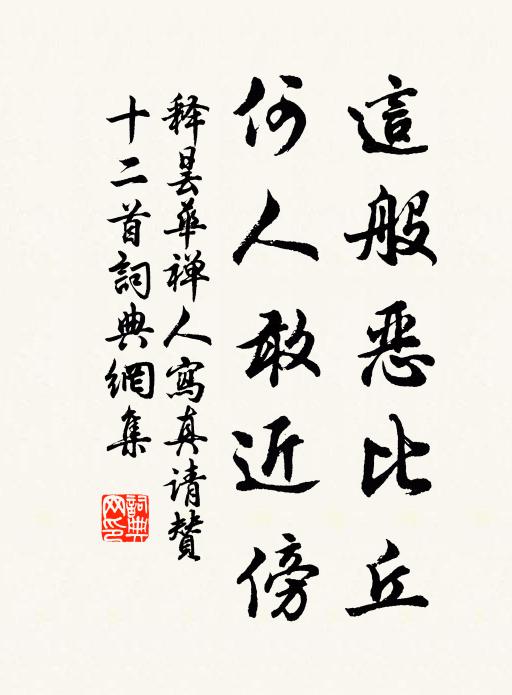 這般恶比丘
何人敢近傍
释昙华禅人寫真请贊
十二首詞典網集
詞典網印